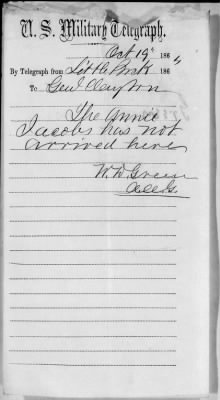 U. S. Military Telegraph.
Oct 19" 1864
By Telegraph from Little Rock 186
To Genl Clayton
The Annie
Jacobs has not
arrived here
W. D. Green
A.A.G.